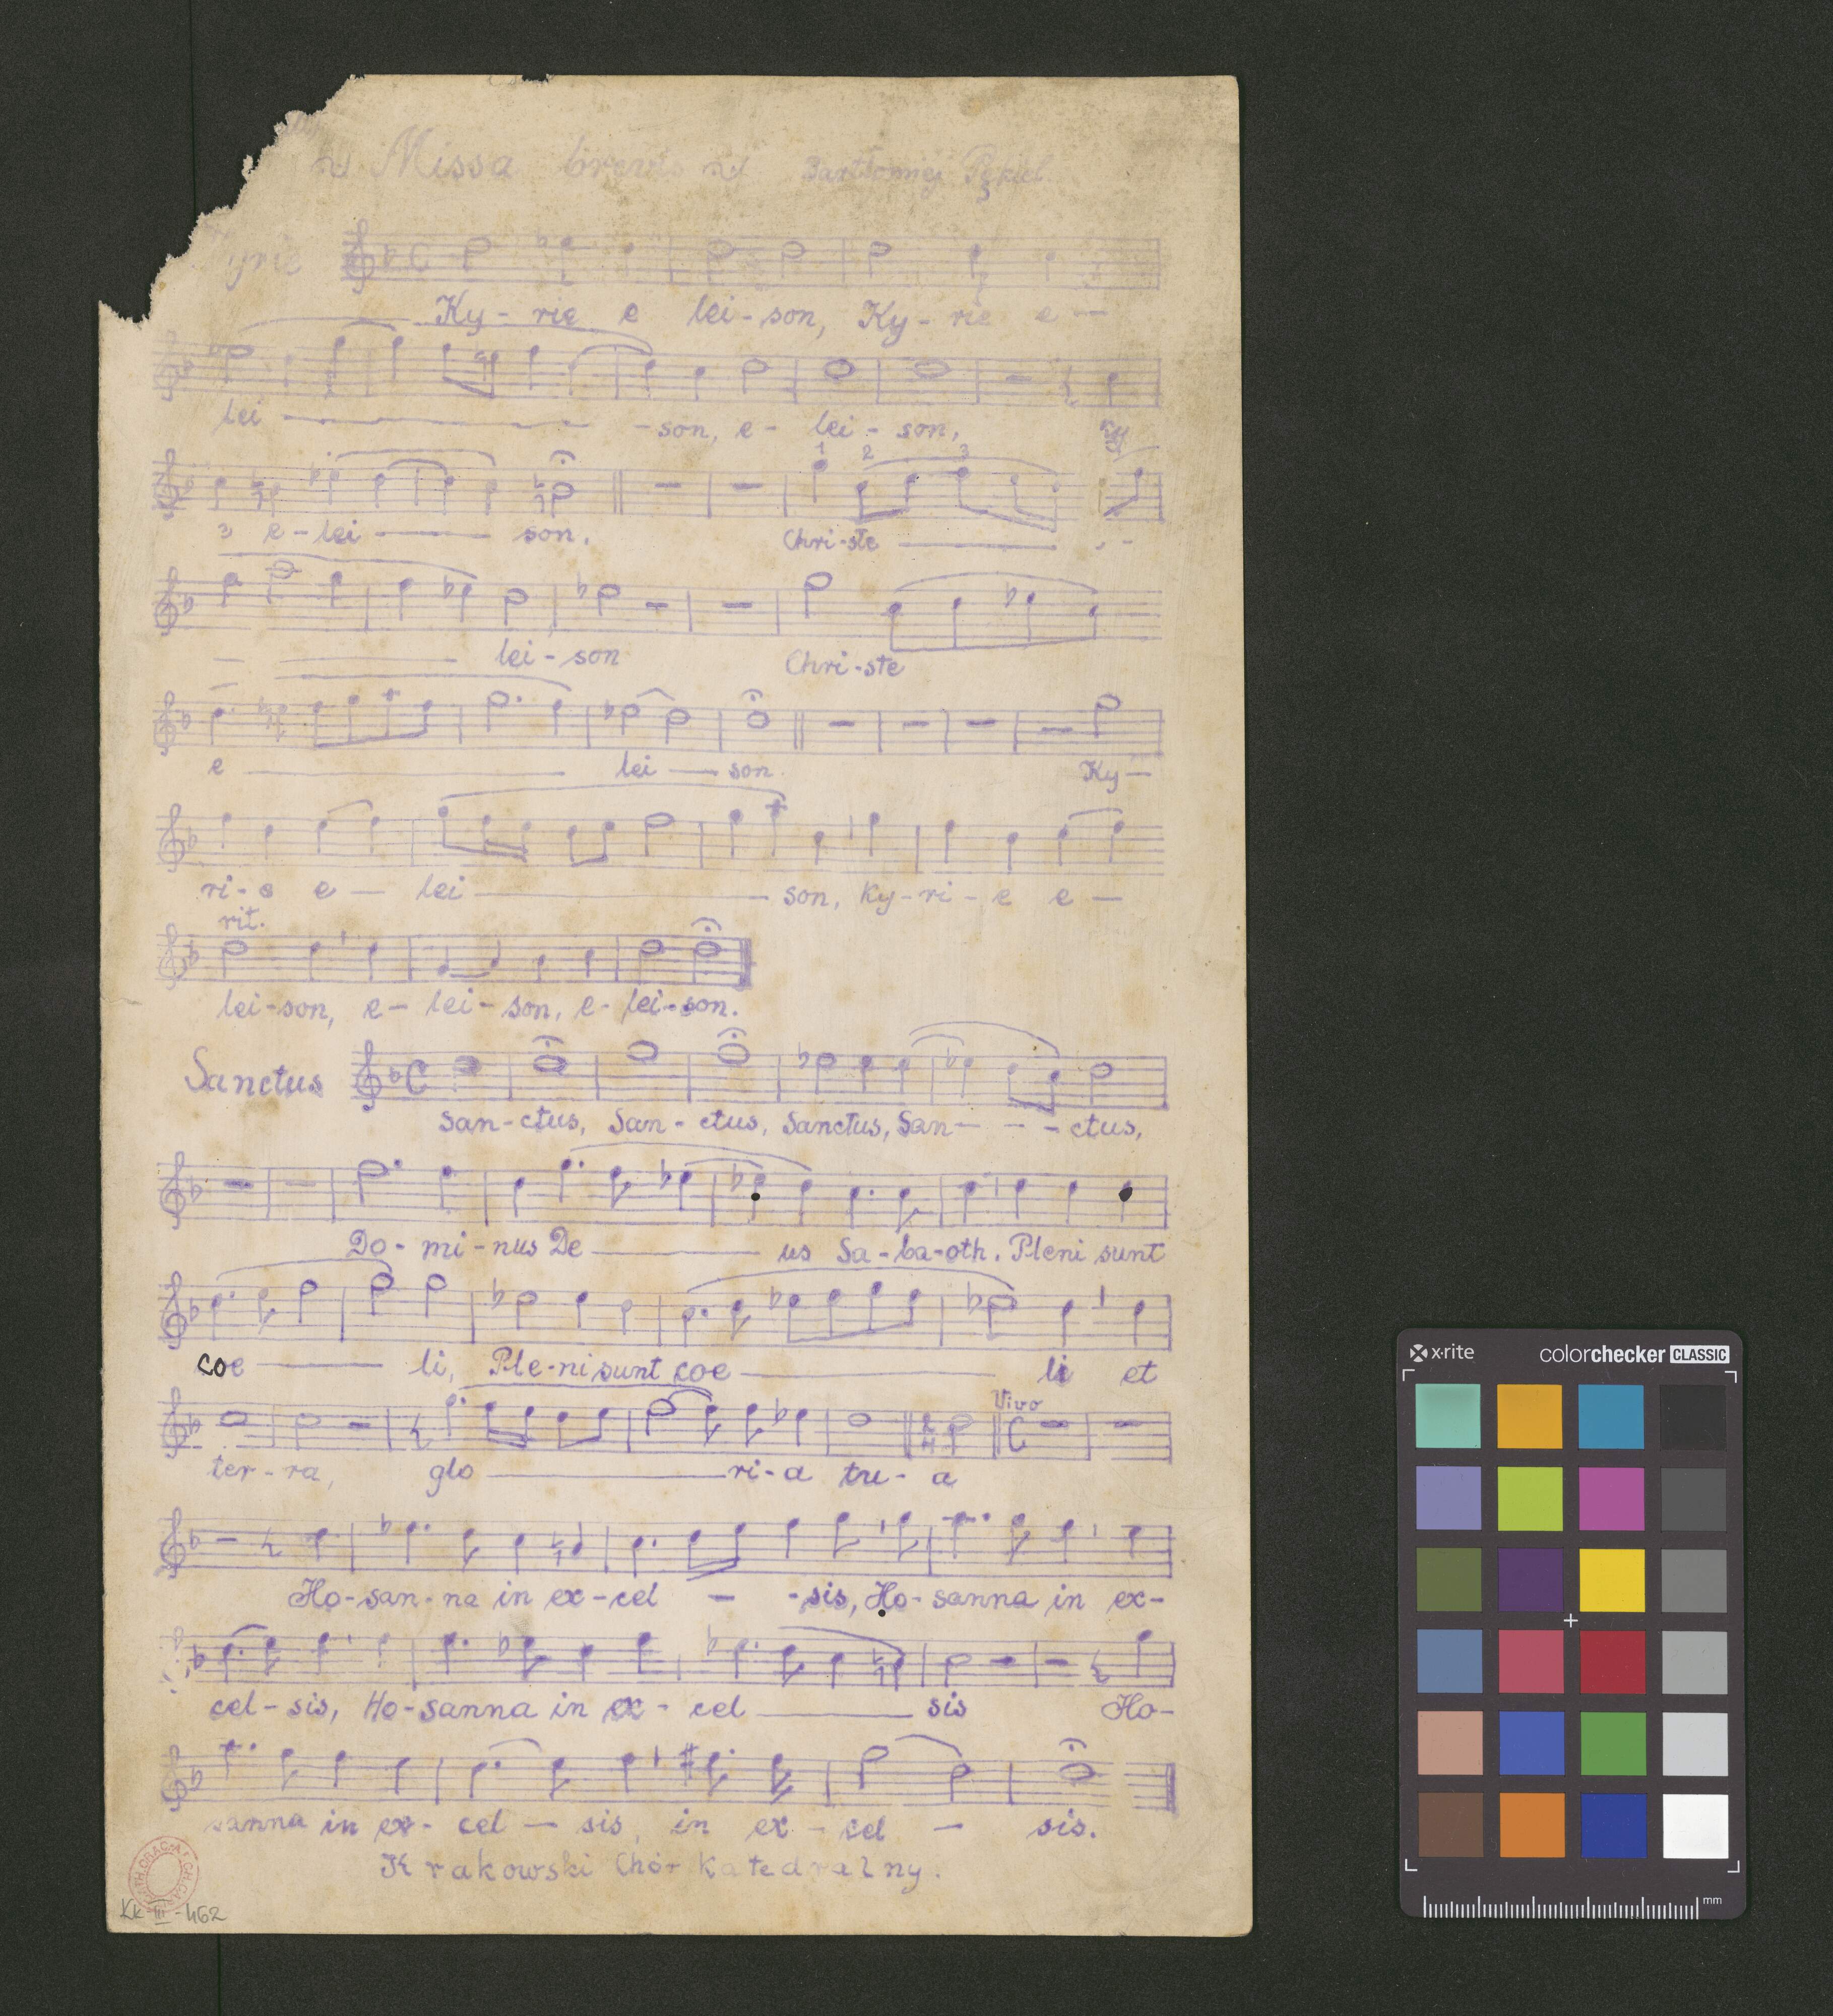 Missa brevis Bartłomiej Pękiel
Kyrie
Ky - rie e lei - son, Ky - rie e -
lei - son, e - lei - son, Ky
1 2 3
e - lei son. Chri - ste
lei - son Chri - ste
e lei son. Ky -
ri - e e - lei son, Ky - ri - e e -
rit.
lei - son, e - lei - son, e - lei - son.
Sanctus
San - ctus, San - ctus, Sanctus, San - - - ctus,
Do - mi - nus De us Sa - ba - oth. Pleni sunt
coe li, Ple - ni sunt coe li et
Vivo
ter - ra, glo ri - a tu - a
Ho - san - na in ex - cel - - sis, Ho - sanna in ex -
cel - sis, Ho - sanna in ex - cel sis Ho -
sanna in ex - cel - sis, in ex - cel - sis.
Krakowski Chór Katedralny.
Kk-III-462
x·rite colorchecker CLASSIC
mm